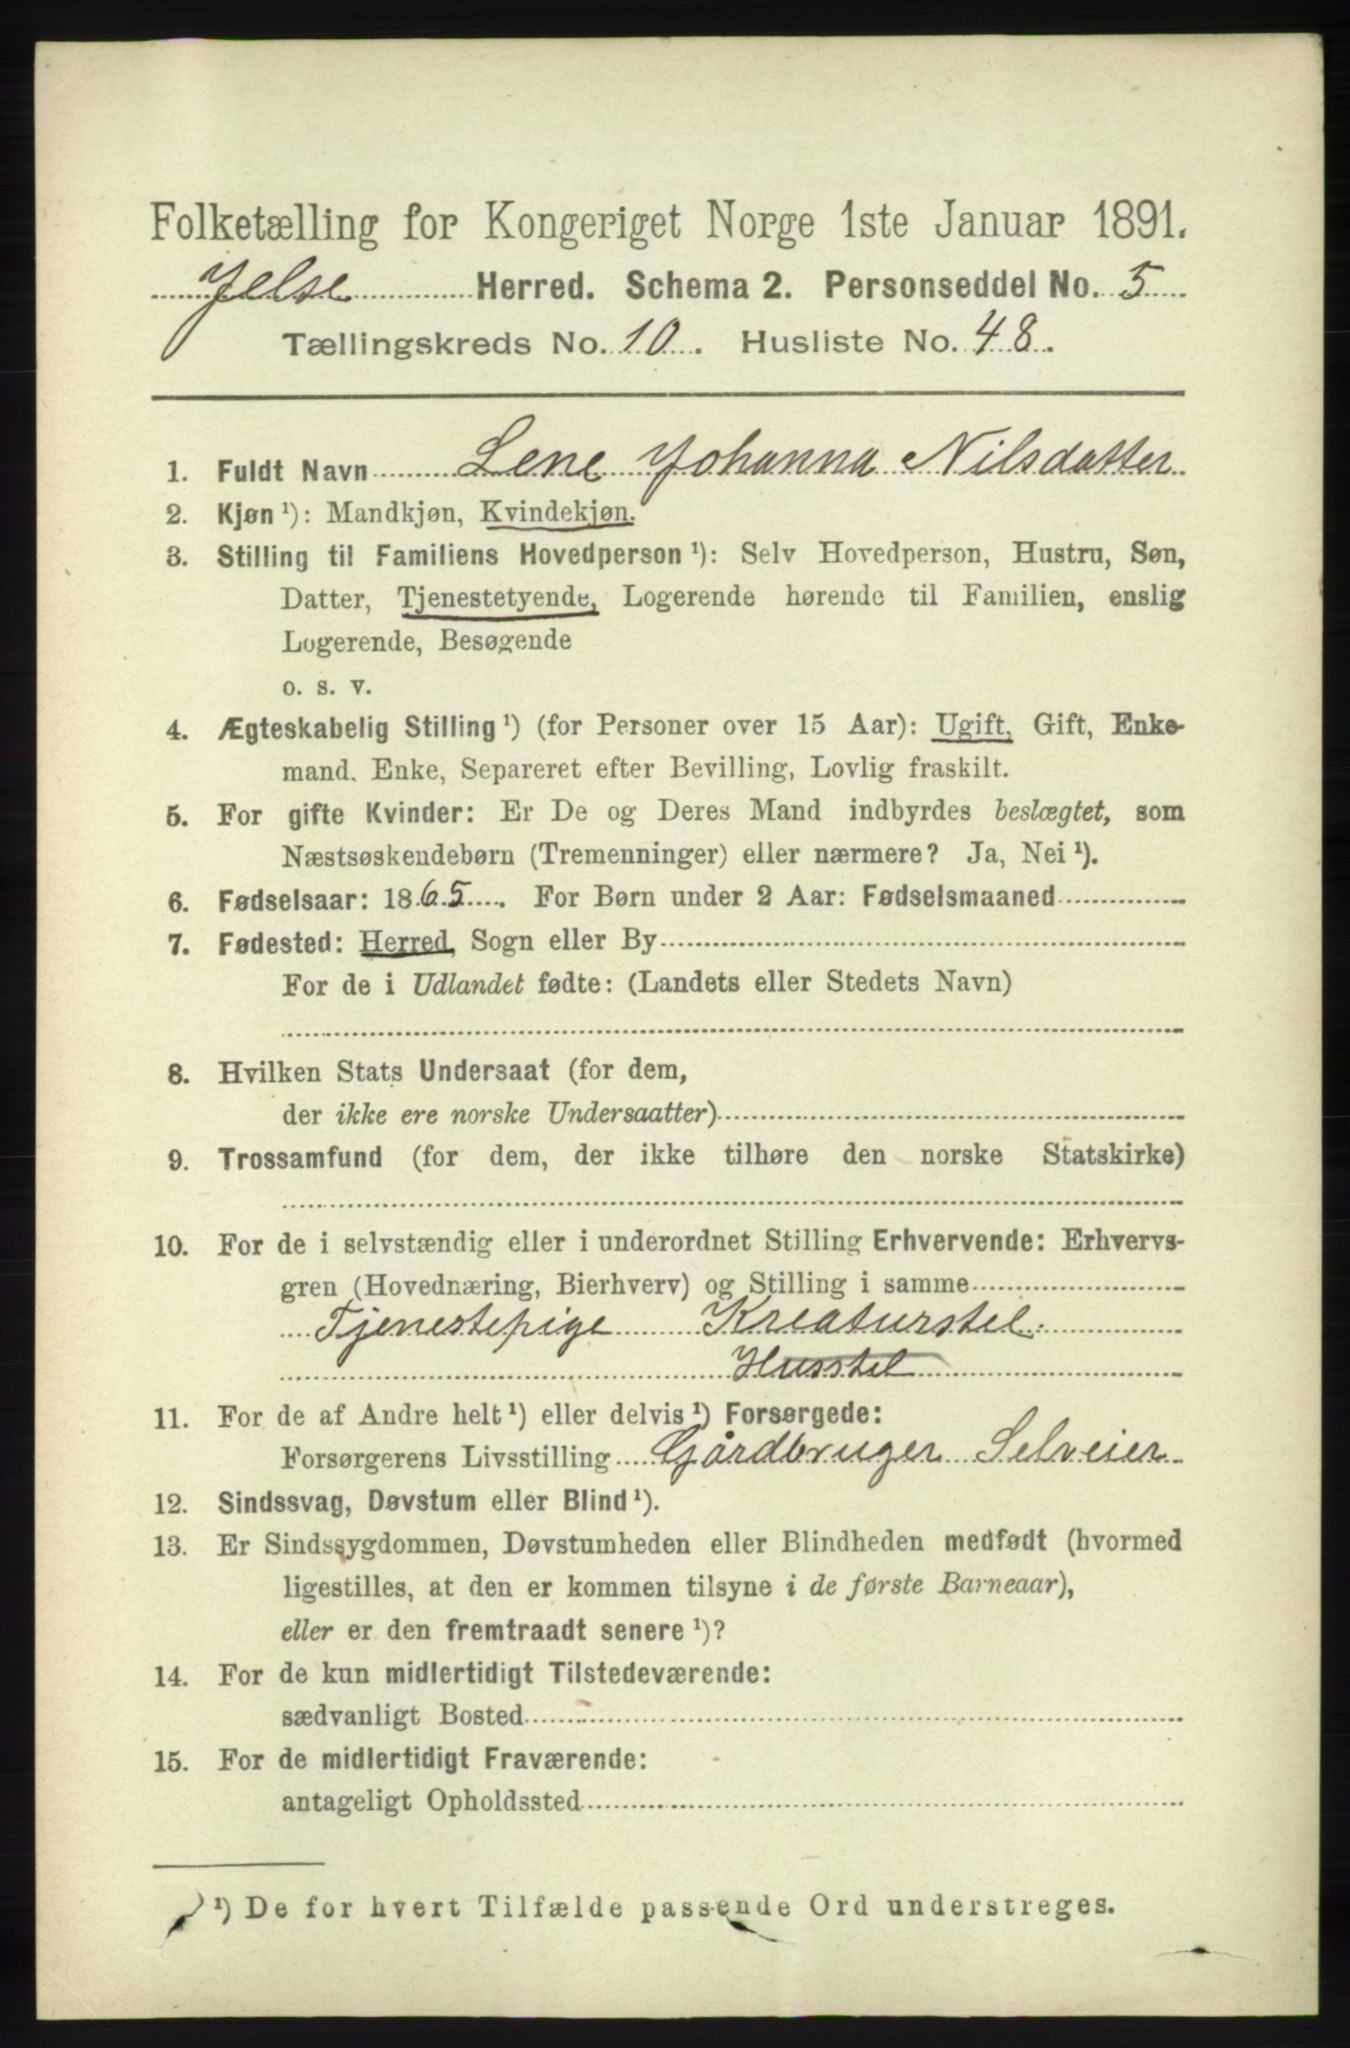 Folketælling for Kongeriget Norge 1ste Januar 1891.
Jelse Herred. Schema 2. Personseddel No. 5
Tællingskreds No. 10. Husliste No. 48.
1. Fuldt Navn Lene Johanna Nilsdatter
2. Kjøn ¹): Mandkjøn, Kvindekjøn.
3. Stilling til Familiens Hovedperson ¹): Selv Hovedperson, Hustru, Søn,
Datter, Tjenestetyende, Logerende hørende til Familien, enslig
Logerende, Besøgende
o. s. v.
4. Ægteskabelig Stilling ¹) (for Personer over 15 Aar): Ugift, Gift, Enke-
mand, Enke, Separeret efter Bevilling, Lovlig fraskilt.
5. For gifte Kvinder: Er De og Deres Mand indbyrdes beslægtet, som
Næstsøskendebørn (Tremenninger) eller nærmere? Ja, Nei ¹).
6. Fødselsaar: 1865. For Børn under 2 Aar: Fødselsmaaned
7. Fødested: Herred, Sogn eller By
For de i Udlandet fødte: (Landets eller Stedets Navn)
8. Hvilken Stats Undersaat (for dem,
der ikke ere norske Undersaatter)
9. Trossamfund (for dem, der ikke tilhøre den norske Statskirke)
10. For de i selvstændig eller i underordnet Stilling Erhvervende: Erhvervs-
gren (Hovednæring, Bierhverv) og Stilling i samme
Tjenestepige Kreaturstel.
Husstel
11. For de af Andre helt ¹) eller delvis ¹) Forsørgede:
Forsørgerens Livsstilling Gårdbruger Selveier
12. Sindssvag, Døvstum eller Blind ¹).
13. Er Sindssygdommen, Døvstumheden eller Blindheden medfødt (hvormed
ligestilles, at den er kommen tilsyne i de første Barneaar),
eller er den fremtraadt senere ¹)?
14. For de kun midlertidigt Tilstedeværende:
sædvanligt Bosted
15. For de midlertidigt Fraværende:
antageligt Opholdssted
¹) De for hvert Tilfælde passende Ord understreges.